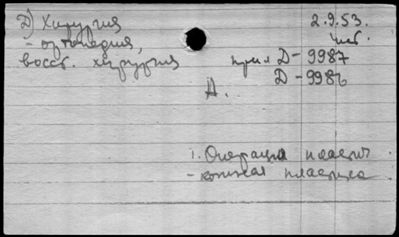 Д) Хирургия
- ортопедия,
восст. хирургия
2.9.53.
прил Д-9987
Д-9986
А.
1. Операция пластич
- кожная пластика